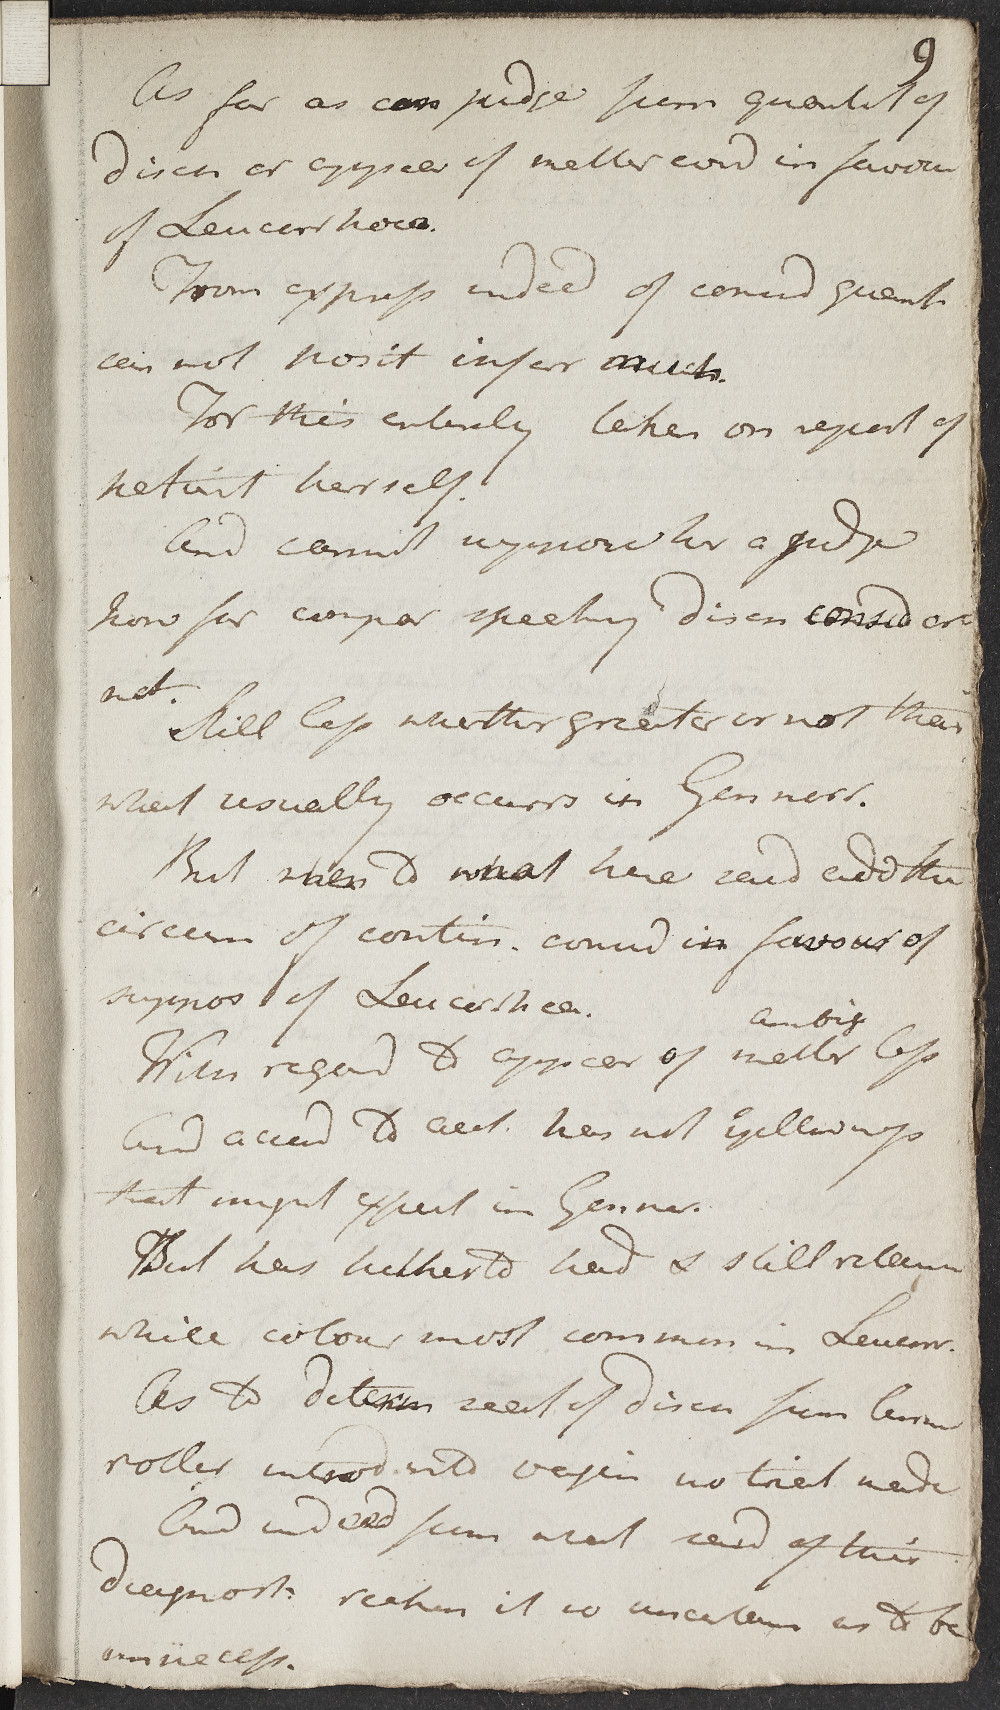 9
As far as can judge from quantit of
disch or appear of matter concl in favour
of Leucorrhoea.
From express indeed of consid quant
can not posit infer much.
For this entirely taken on report of
patient herself.
And cannot suppose her a judge
how far compar speaking disch consid or
not.
Still less whether greater or not than
what usually occurs in Gonnorr.
But when to what here said add the
circum of contin. concd in favour of
suppos of Leucorrhea.
With regard to appear of matter less
ambig
And accord to acct. has not yellowness
that might expect in Gonnor.
But has hitherto had & still retain
white colour most common in Leucorr.
As to determ seat of disch from
roller introd into vagin no trial made
And indeed from what said of this
diagnost. reckon it so uncertain as to be
unnecess.